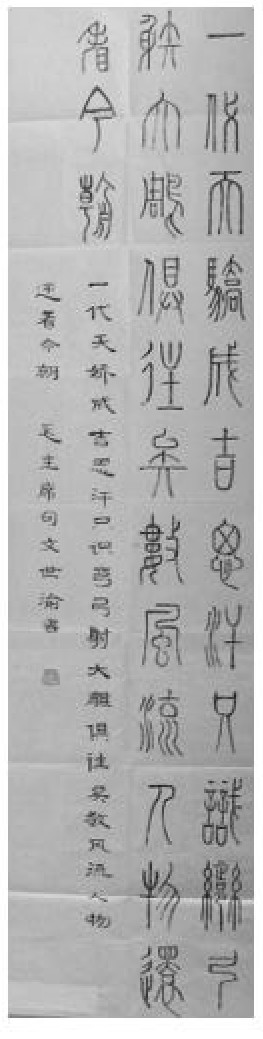 一代天驕成吉思汗只識彎弓
射大鵰俱往矣數風流人物還
看今朝
一代天娇成吉思汗只识弯弓射大雕俱往矣数风流人物
还看今朝 毛主席句文世渝書